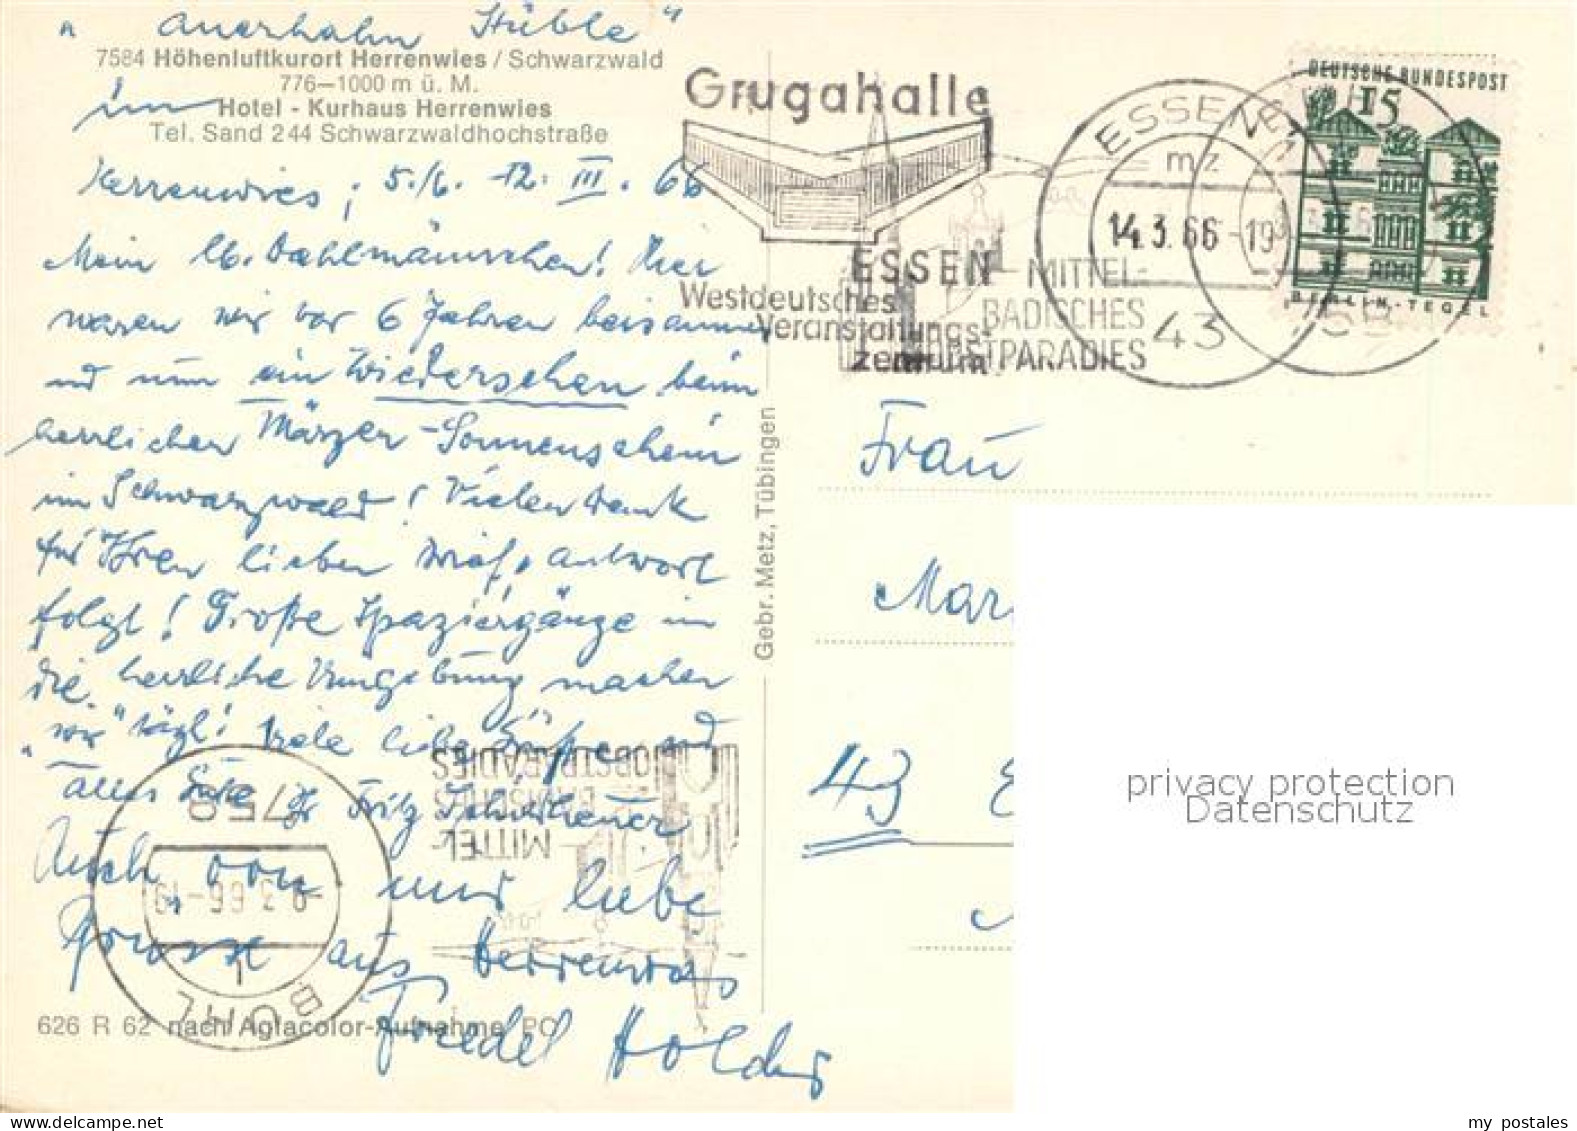 "Auerhahn Stüble"
7584 Höhenluftkurort Herrenwies / Schwarzwald
776–1000 m ü. M.
im
Hotel - Kurhaus Herrenwies
Tel. Sand 2 44 Schwarzwaldhochstraße
Herrenwies, 5./6. -12. III. 66
Mein lb. Dahlmännschen! Hier
waren wir vor 6 Jahren beisammen
und nun ein Wiedersehen beim
herrlichen Märzer-Sonnenschein
im Schwarzwald! Vielen Dank
für Ihren lieben Brief, Antwort
folgt! Große Spaziergänge in
die herrliche Umgebung machen
"wir" tägl! Viele liebe Grüße und
alles Gute Ihr Fritz
Auch von mir liebe
Grüsse aus Herrenwies
Friedel
626 R 62 nach Agfacolor-Aufnahme PC
Gebr. Metz, Tübingen
Grugahalle
ESSEN
Westdeutsches
Veranstaltungs-
zentrum
MITTEL-
BADISCHES
OBSTPARADIES
ESSEN
mz
14.3.66-19
43
DEUTSCHE BUNDESPOST
15
BERLIN-TEGEL
Frau
Mar
43 E
MITTEL-
BADISCHES
OBSTPARADIES
758
-9.3.66-19
1
BÜHL
privacy protection
Datenschutz
my postales